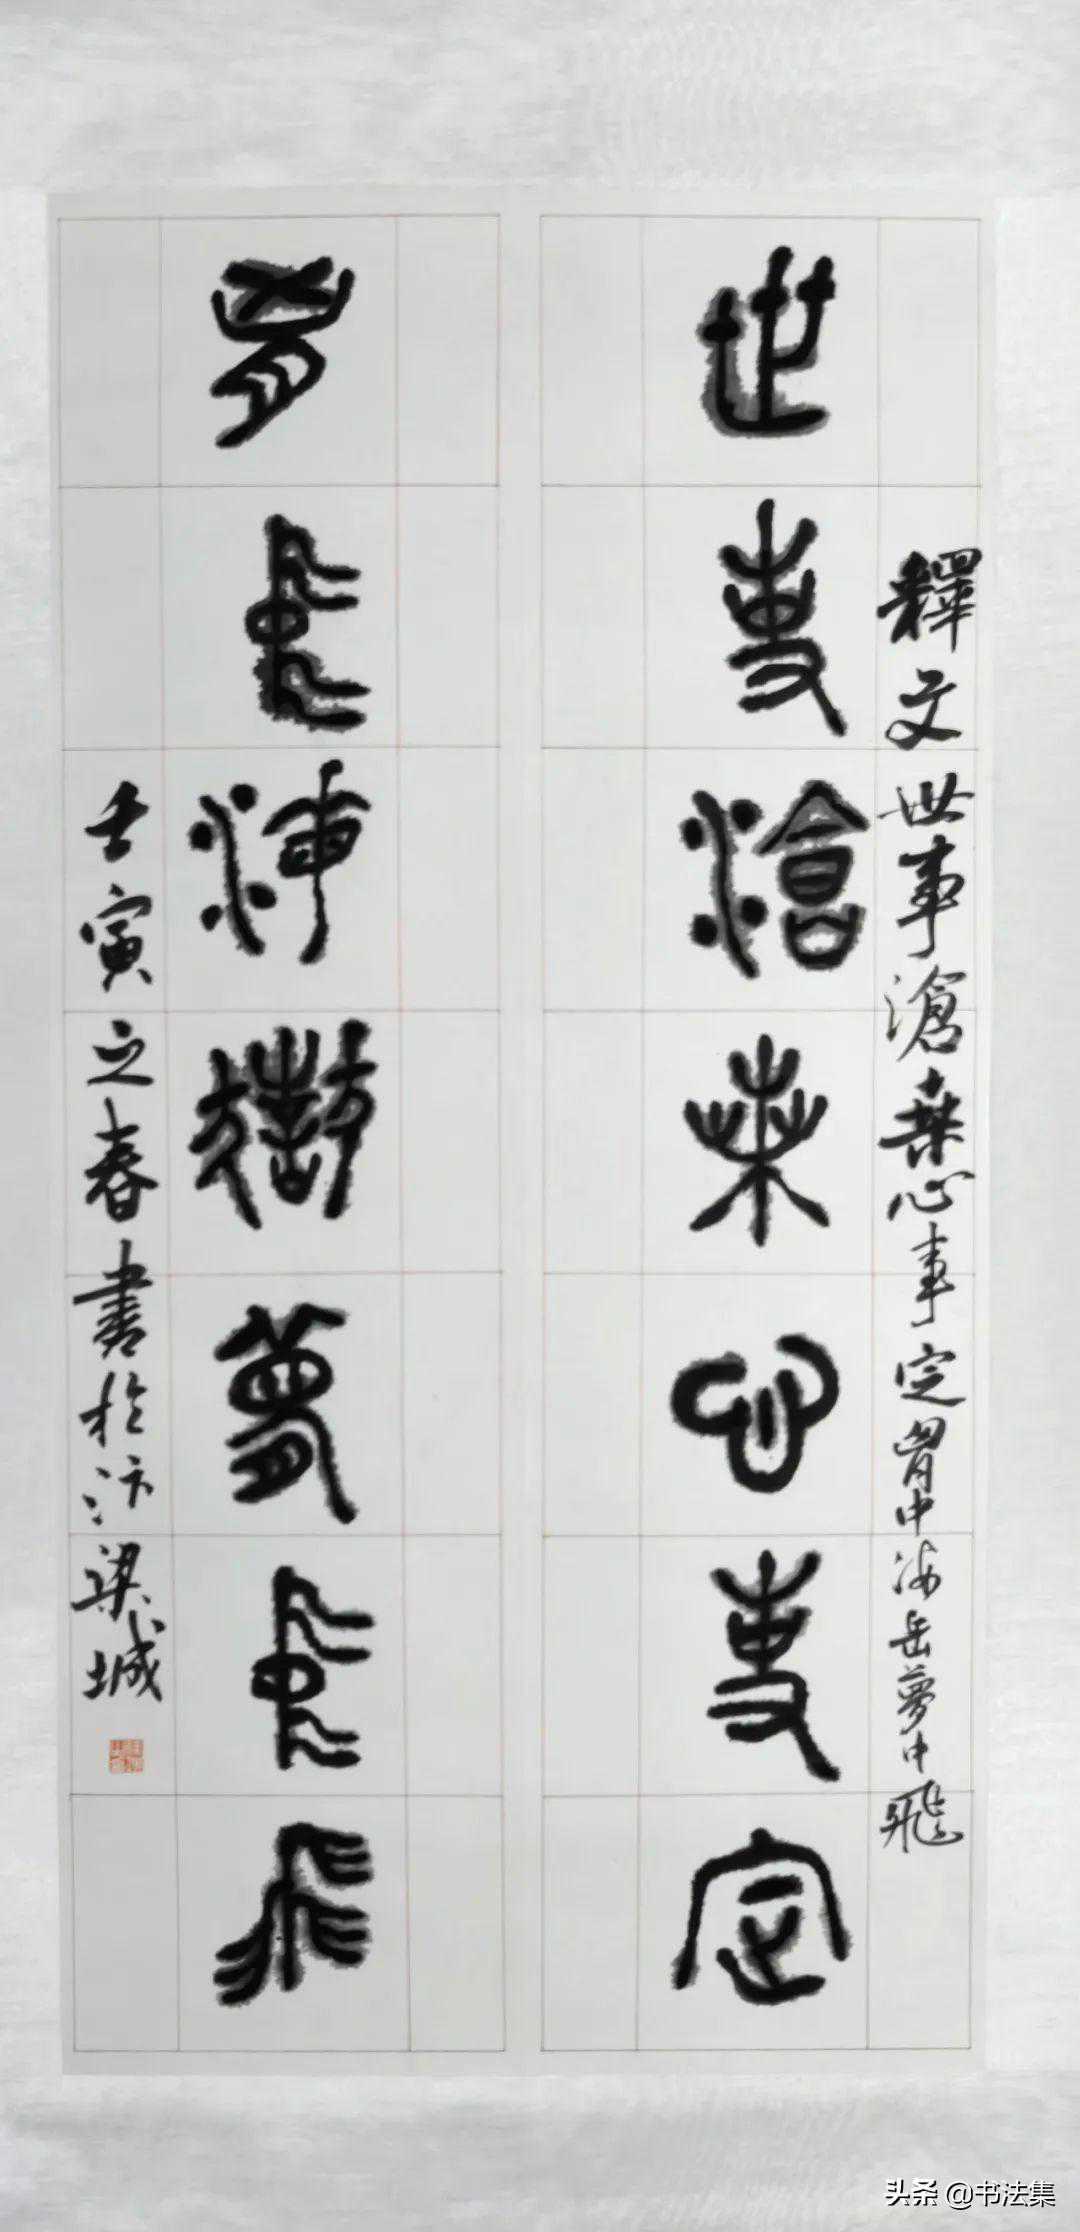 釋文 世事滄桑心事定 胷中海岳夢中飛
世事滄桑心事定
胷中海嶽夢中飛
壬寅之春書於汴梁城
头条 @书法集